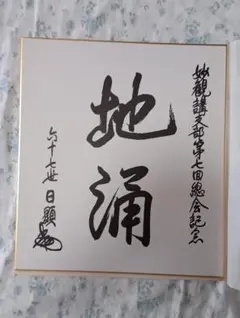 妙観講支部第七回総会記念
地涌
六十七世 日顕